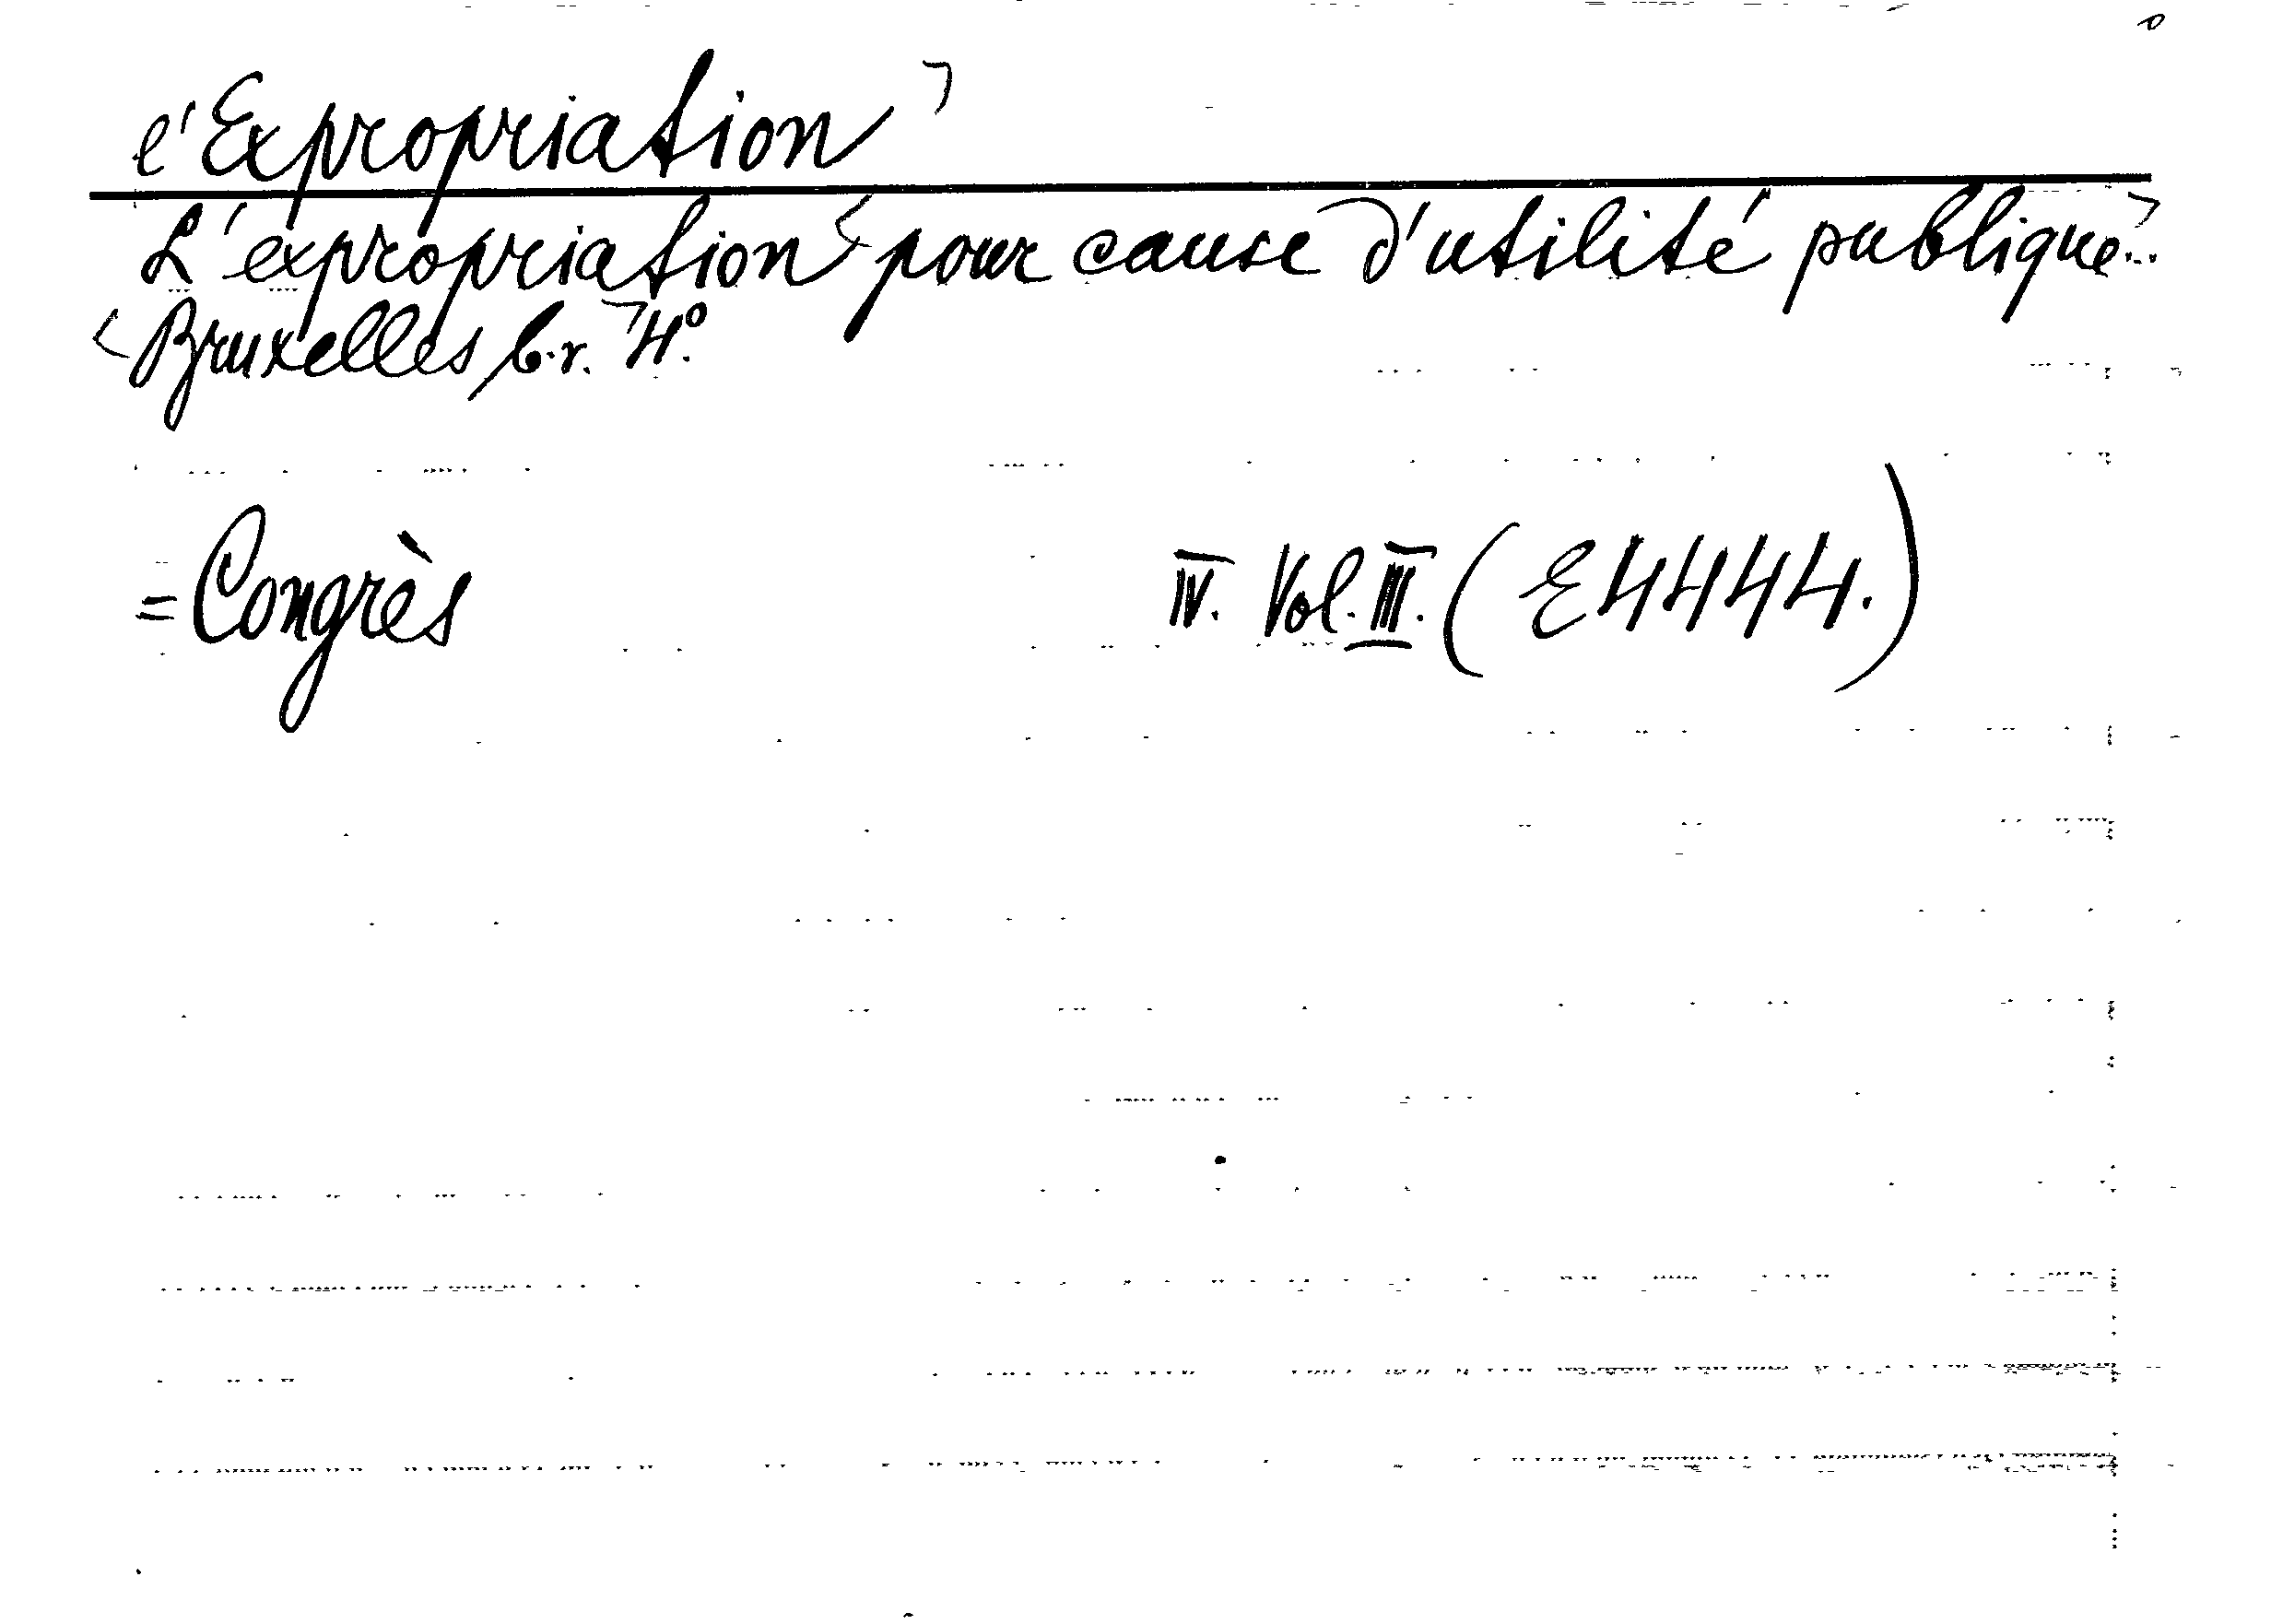 l'Expropriation
L'expropriation pour cause d'utilité publique.
Bruxelles, b.r. 4°.
=Congrès IV. Vol. III. (E4444.)